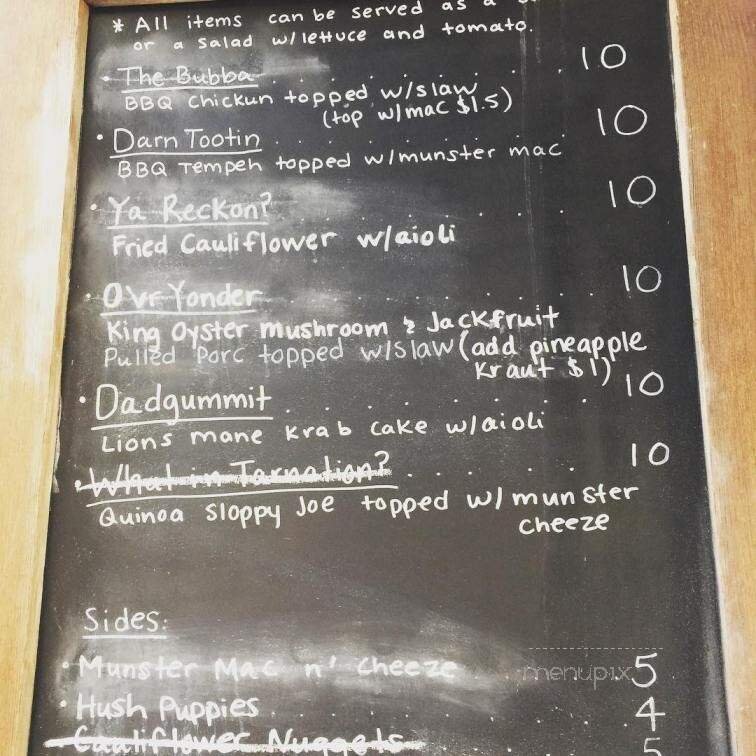 * All items can be served as a
or a salad w/lettuce and tomato.
• The Bubba . . . . . . . . . 10
BBQ Chickun topped w/slaw
(top w/mac $1.5)
• Darn Tootin . . . . . . . . . 10
BBQ Tempeh topped w/munster mac
• Ya Reckon? . . . . . . . . 10
Fried Cauliflower w/aioli
• Ovr Yonder . . . . . . . . . 10
King Oyster mushroom & Jackfruit
Pulled Porc topped w/slaw (add pineapple
kraut $1)
• Dadgummit . . . . . . . . . 10
Lions mane Krab cake w/aioli
• What in Tarnation? . . . . . . 10
Quinoa Sloppy Joe topped w/munster
cheeze
Sides:
• Munster Mac n' Cheeze . . . 5
menupix
• Hush Puppies . . . . . . . . 4
• Cauliflower Nuggets . . . . 5